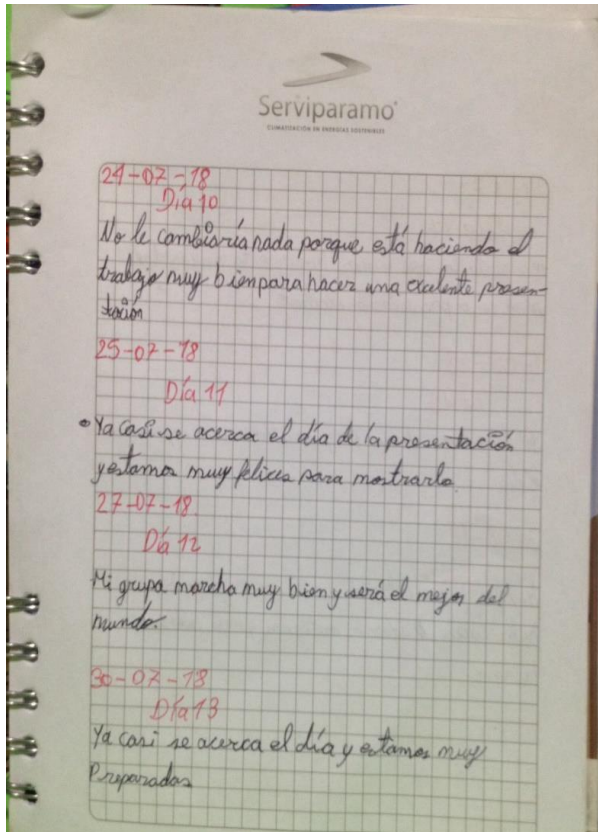 Serviparamo
CLIMATIZACIÓN EN ENERGÍAS SOSTENIBLES
24-07-18
Día 10
No le cambiaría nada porque está haciendo el
trabajo muy bien para hacer una excelente presen-
tación
25-07-18
Día 11
• Ya casi se acerca el día de la presentación
y estamos muy felices para mostrarlo.
27-07-18
Día 12
Mi grupo marcha muy bien y será el mejor del
mundo.
30-07-18
Día 13
Ya casi se acerca el día y estamos muy
Preparados